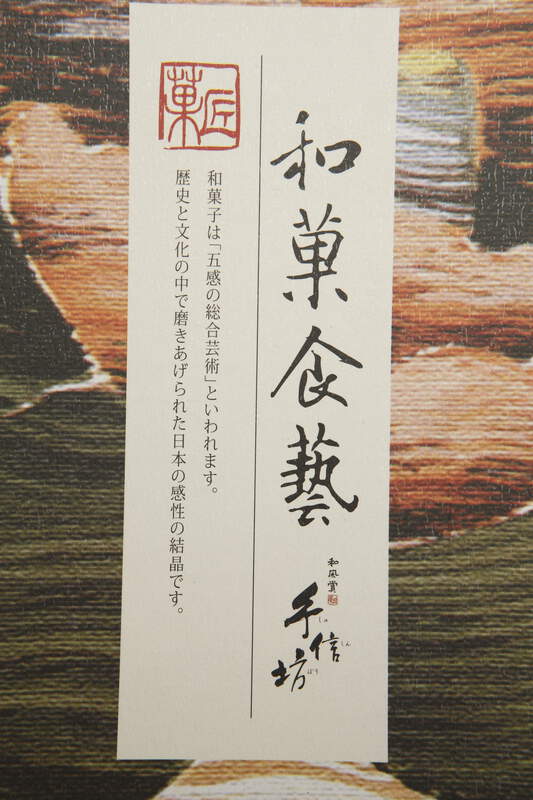 和菓食藝
和風賞
手信坊
しゅ
しん
ぼう
菓匠
和菓子は「五感の総合芸術」といわれます。
歴史と文化の中で磨きあげられた日本の感性の結晶です。